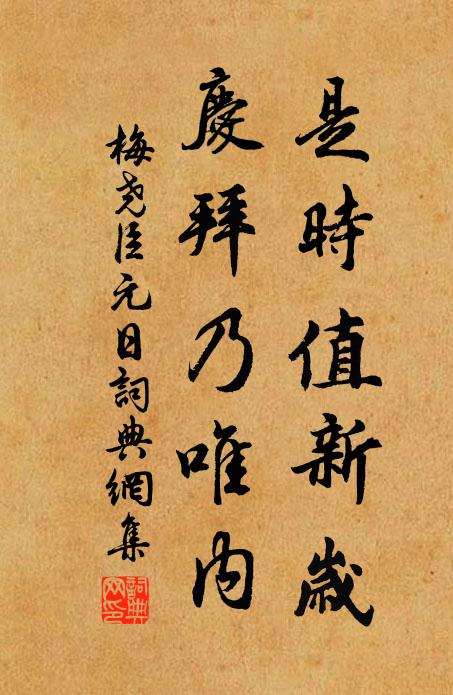 是時值新歲
慶拜乃唯內
梅堯臣元日詞典網集
詞典網印